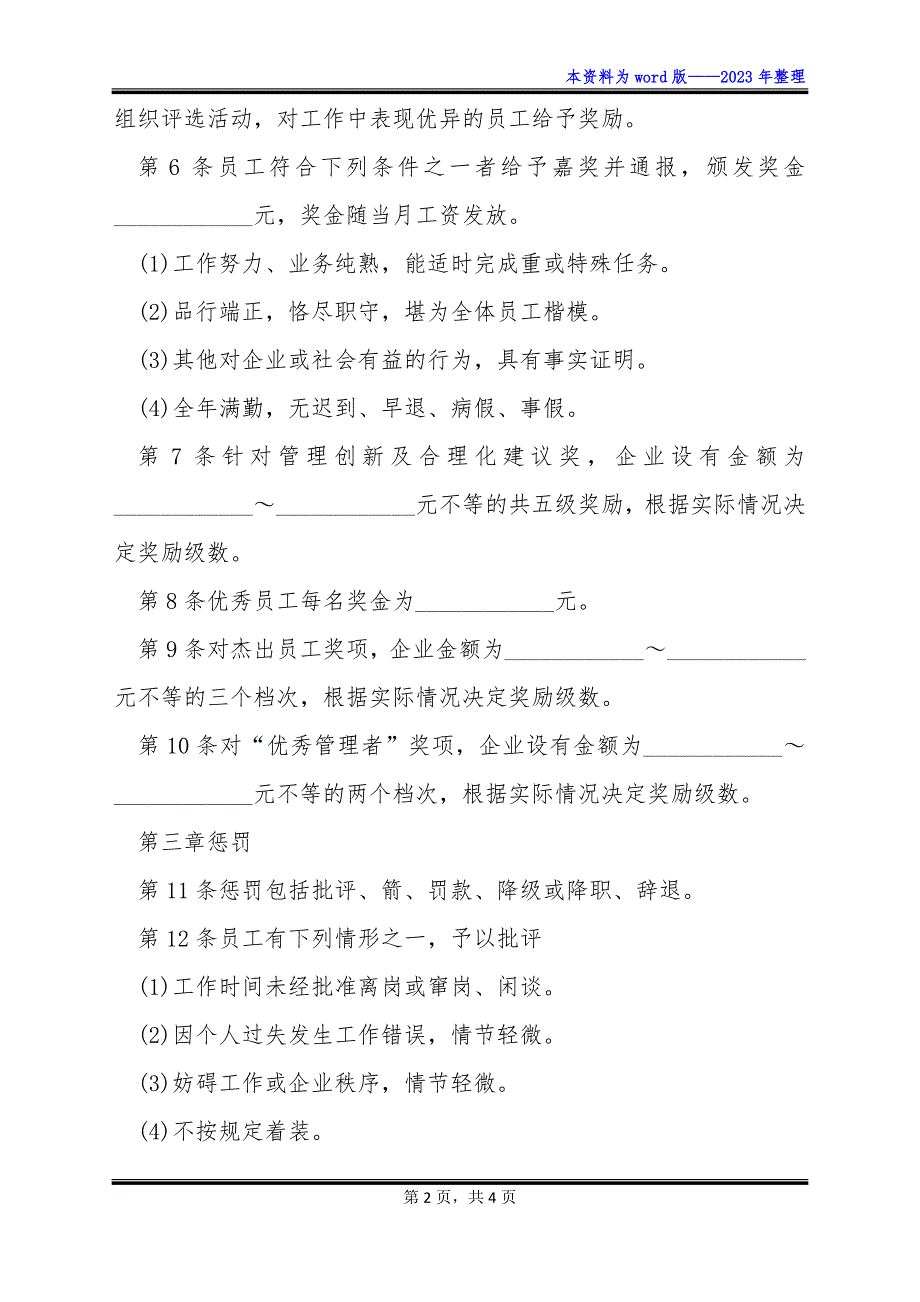 本资料为 word 版——2023 年整理
组织评选活动，对工作中表现优异的员工给予奖励。
第 6 条员工符合下列条件之一者给予嘉奖并通报，颁发奖金
____________元，奖金随当月工资发放。
(1)工作努力、业务纯熟，能适时完成重或特殊任务。
(2)品行端正，恪尽职守，堪为全体员工楷模。
(3)其他对企业或社会有益的行为，具有事实证明。
(4)全年满勤，无迟到、早退、病假、事假。
第 7 条针对管理创新及合理化建议奖，企业设有金额为
____________～____________元不等的共五级奖励，根据实际情况决
定奖励级数。
第 8 条优秀员工每名奖金为____________元。
第 9 条对杰出员工奖项，企业金额为____________～____________
元不等的三个档次，根据实际情况决定奖励级数。
第 10 条对“优秀管理者”奖项，企业设有金额为____________～
____________元不等的两个档次，根据实际情况决定奖励级数。
第三章惩罚
第 11 条惩罚包括批评、箭、罚款、降级或降职、辞退。
第 12 条员工有下列情形之一，予以批评
(1)工作时间未经批准离岗或窜岗、闲谈。
(2)因个人过失发生工作错误，情节轻微。
(3)妨碍工作或企业秩序，情节轻微。
(4)不按规定着装。
第 2 页，共 4 页